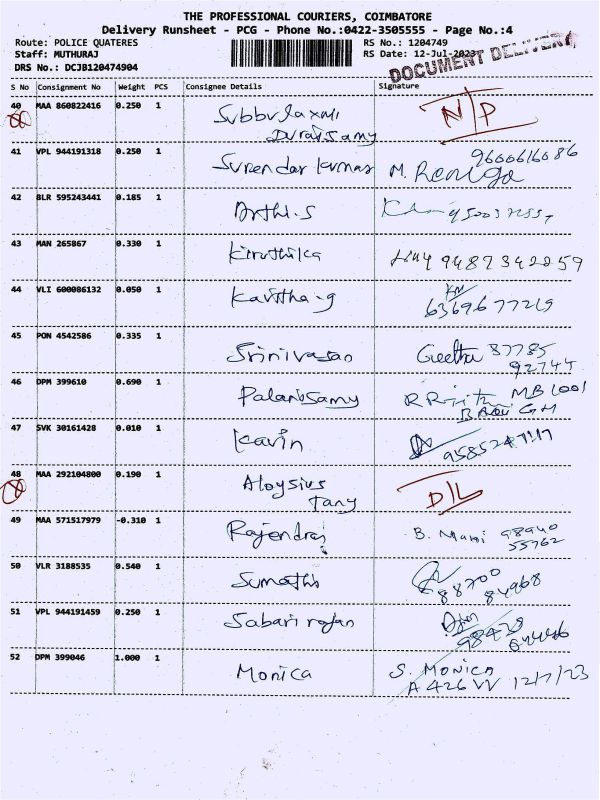 THE PROFESSIONAL COURIERS, COIMBATORE
Delivery Runsheet - PCG - Phone No.:0422-3505555 - Page No.:4
Route: POLICE QUATERES RS No.: 1204749
Staff: MUTHURAJ RS Date: 12-Jul-2023
DRS No.: DCJB120474904 DOCUMENT DELIVERY
S No Consignment No Weight PCS Consignee Details Signature
40 MAA 860822416 0.250 1 Subbulaxmi N/P
Duraisamy
41 VPL 944191318 0.250 1 Surendar kumar M. Renuga 9600616086
42 BLR 595243441 0.185 1 Arthi.S
43 MAN 265867 0.330 1 Kiruthika 9487342059
44 VLI 600086132 0.050 1 Kavitha-g 6369677219
45 PON 4542586 0.335 1 Srinivasan Geetha 87785
92744
46 DPM 399610 0.690 1 Palanisamy MB 1001
47 SVK 30161428 0.010 1 Kavin
48 MAA 292104800 0.190 1 Aloysius D/L
Tany
49 MAA 571517979 -0.310 1 Rajendra B. Mani 98940
55762
50 VLR 3188535 0.540 1 Sumathi 88700
84968
51 VPL 944191459 0.250 1 Sabari rajan 98428
52 DPM 399046 1.000 1 Monica S. MONICA
A 426 VV 12/7/23